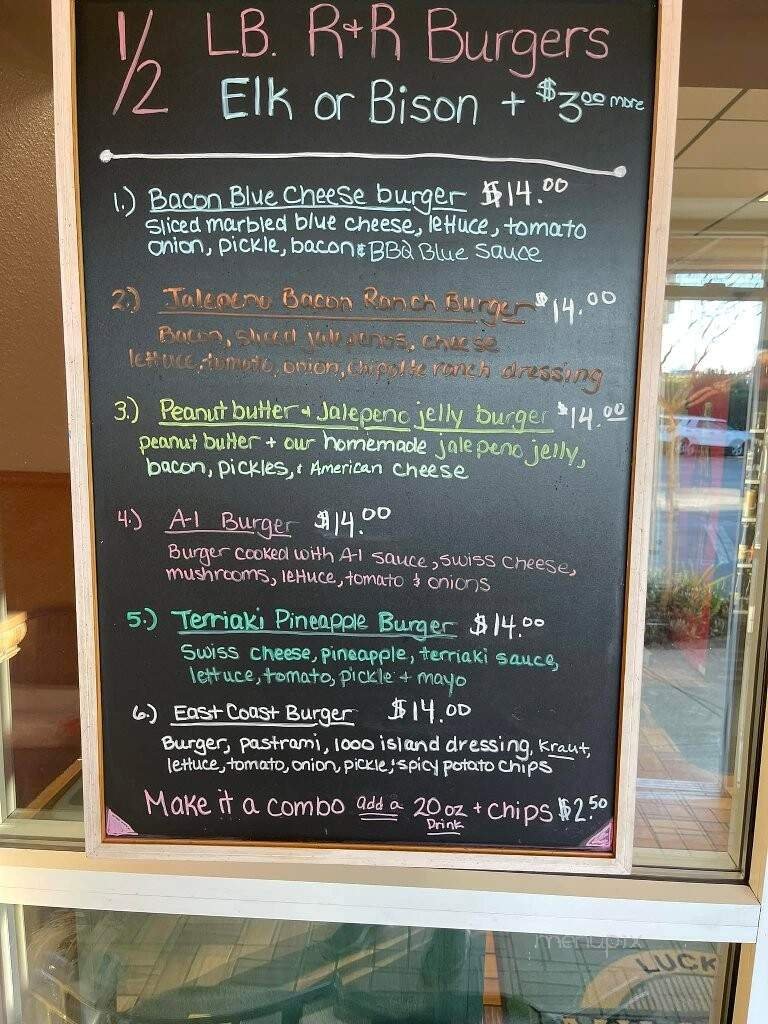 1/2 LB. R+R Burgers
Elk or Bison + $3.00 more
1.) Bacon Blue Cheese burger $14.00
Sliced marbled blue cheese, lettuce, tomato
onion, pickle, bacon & BBQ Blue Sauce
2.) Jalepeno Bacon Ranch Burger $14.00
Bacon, sliced jalepenos, cheese
lettuce, tomato, onion, chipotle ranch dressing
3.) Peanut butter + Jalepeno jelly burger $14.00
peanut butter + our homemade jalepeno jelly,
bacon, pickles, & American cheese
4.) A-1 Burger $14.00
Burger cooked with A-1 sauce, swiss cheese,
mushrooms, lettuce, tomato & onions
5.) Terriaki Pineapple Burger $14.00
Swiss cheese, pineapple, terriaki sauce,
lettuce, tomato, pickle + mayo
6.) East Coast Burger $14.00
Burger, pastrami, 1000 island dressing, kraut,
lettuce, tomato, onion, pickle, & spicy potato chips
Make it a combo add a 20 oz + chips $2.50
Drink
menupix
LUCK